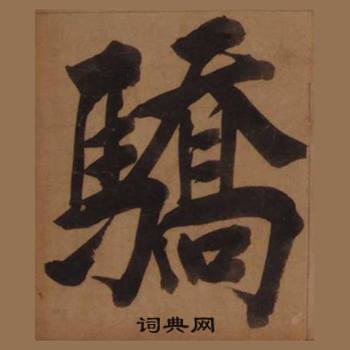 驕
词典网